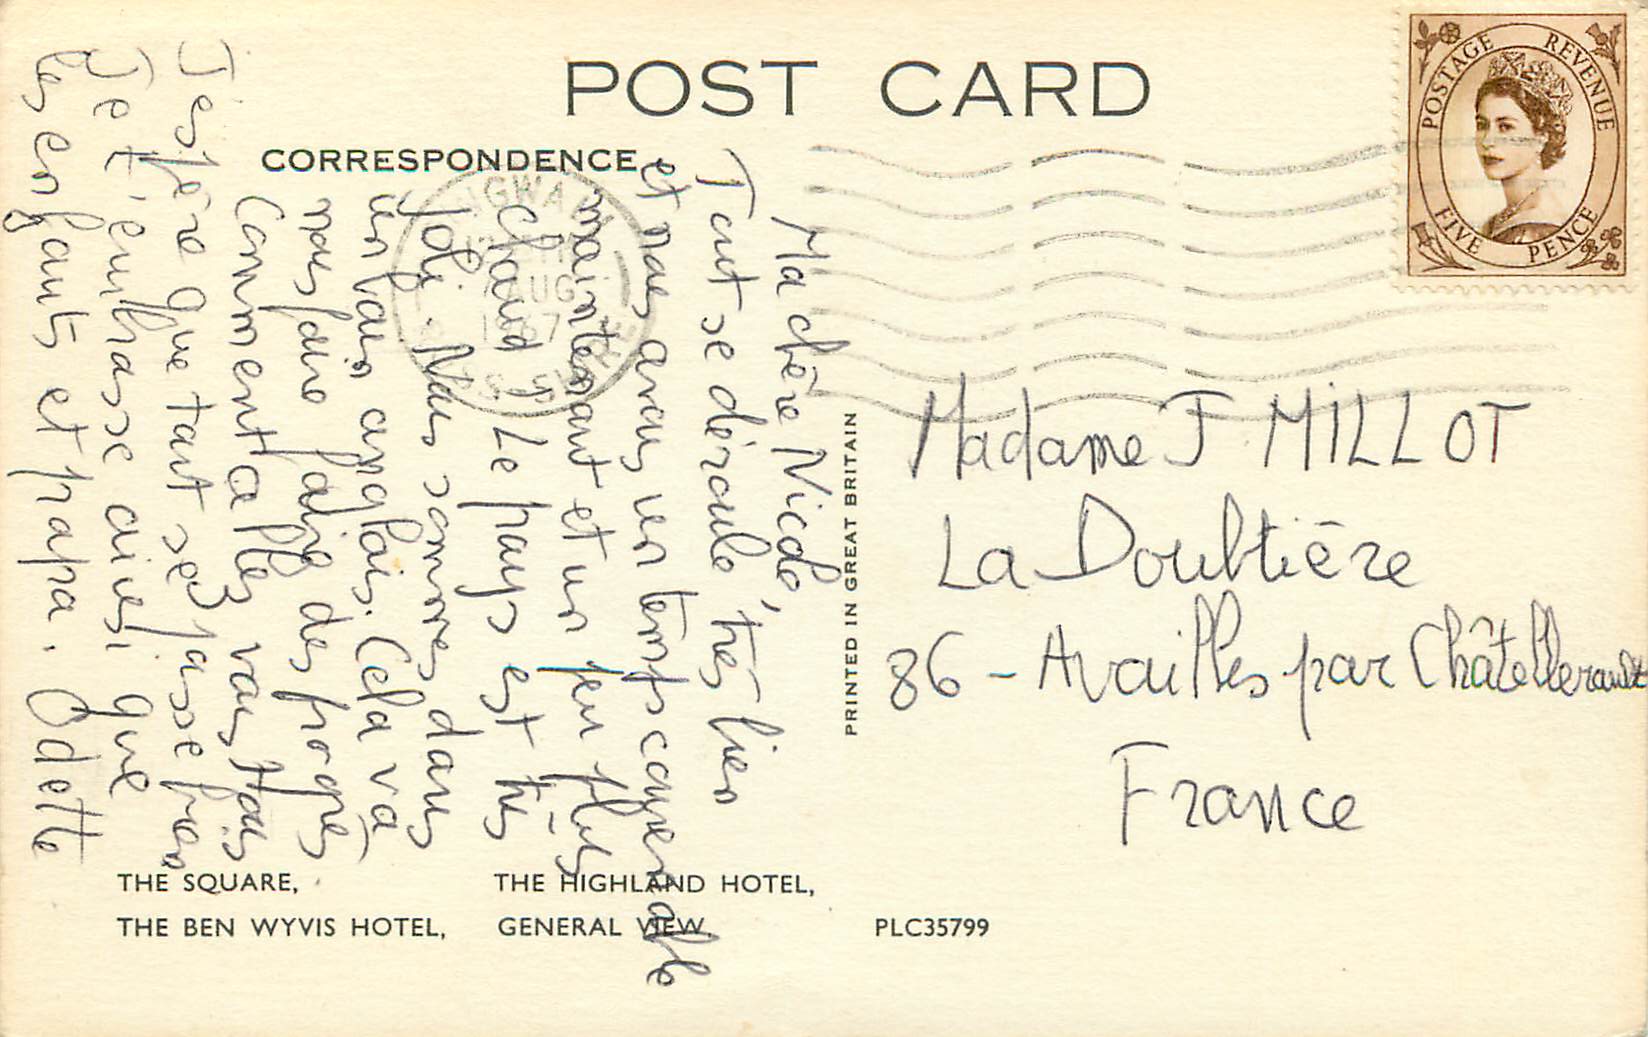 POST CARD
CORRESPONDENCE
POSTAGE REVENUE
FIVE PENCE
DINGWALL
AUG
1967
ROSS-SHIRE
Ma chère Nicole,
Tout se déroule très bien
et nous avons un temps convenable
maintenant et un peu plus
chaud. Le pays est très
joli. Nous sommes dans
un bain anglais. Cela va
nous faire faire des progrès
Comment allez vous tous
J'espère que tout se passe bien
Je t'embrasse ainsi que
les enfants et papa. Odette
PRINTED IN GREAT BRITAIN
Madame J MILLOT
La Doubtière
86 - Availles par Châtellerault
France
THE SQUARE, THE HIGHLAND HOTEL,
THE BEN WYVIS HOTEL, GENERAL VIEW. PLC35799